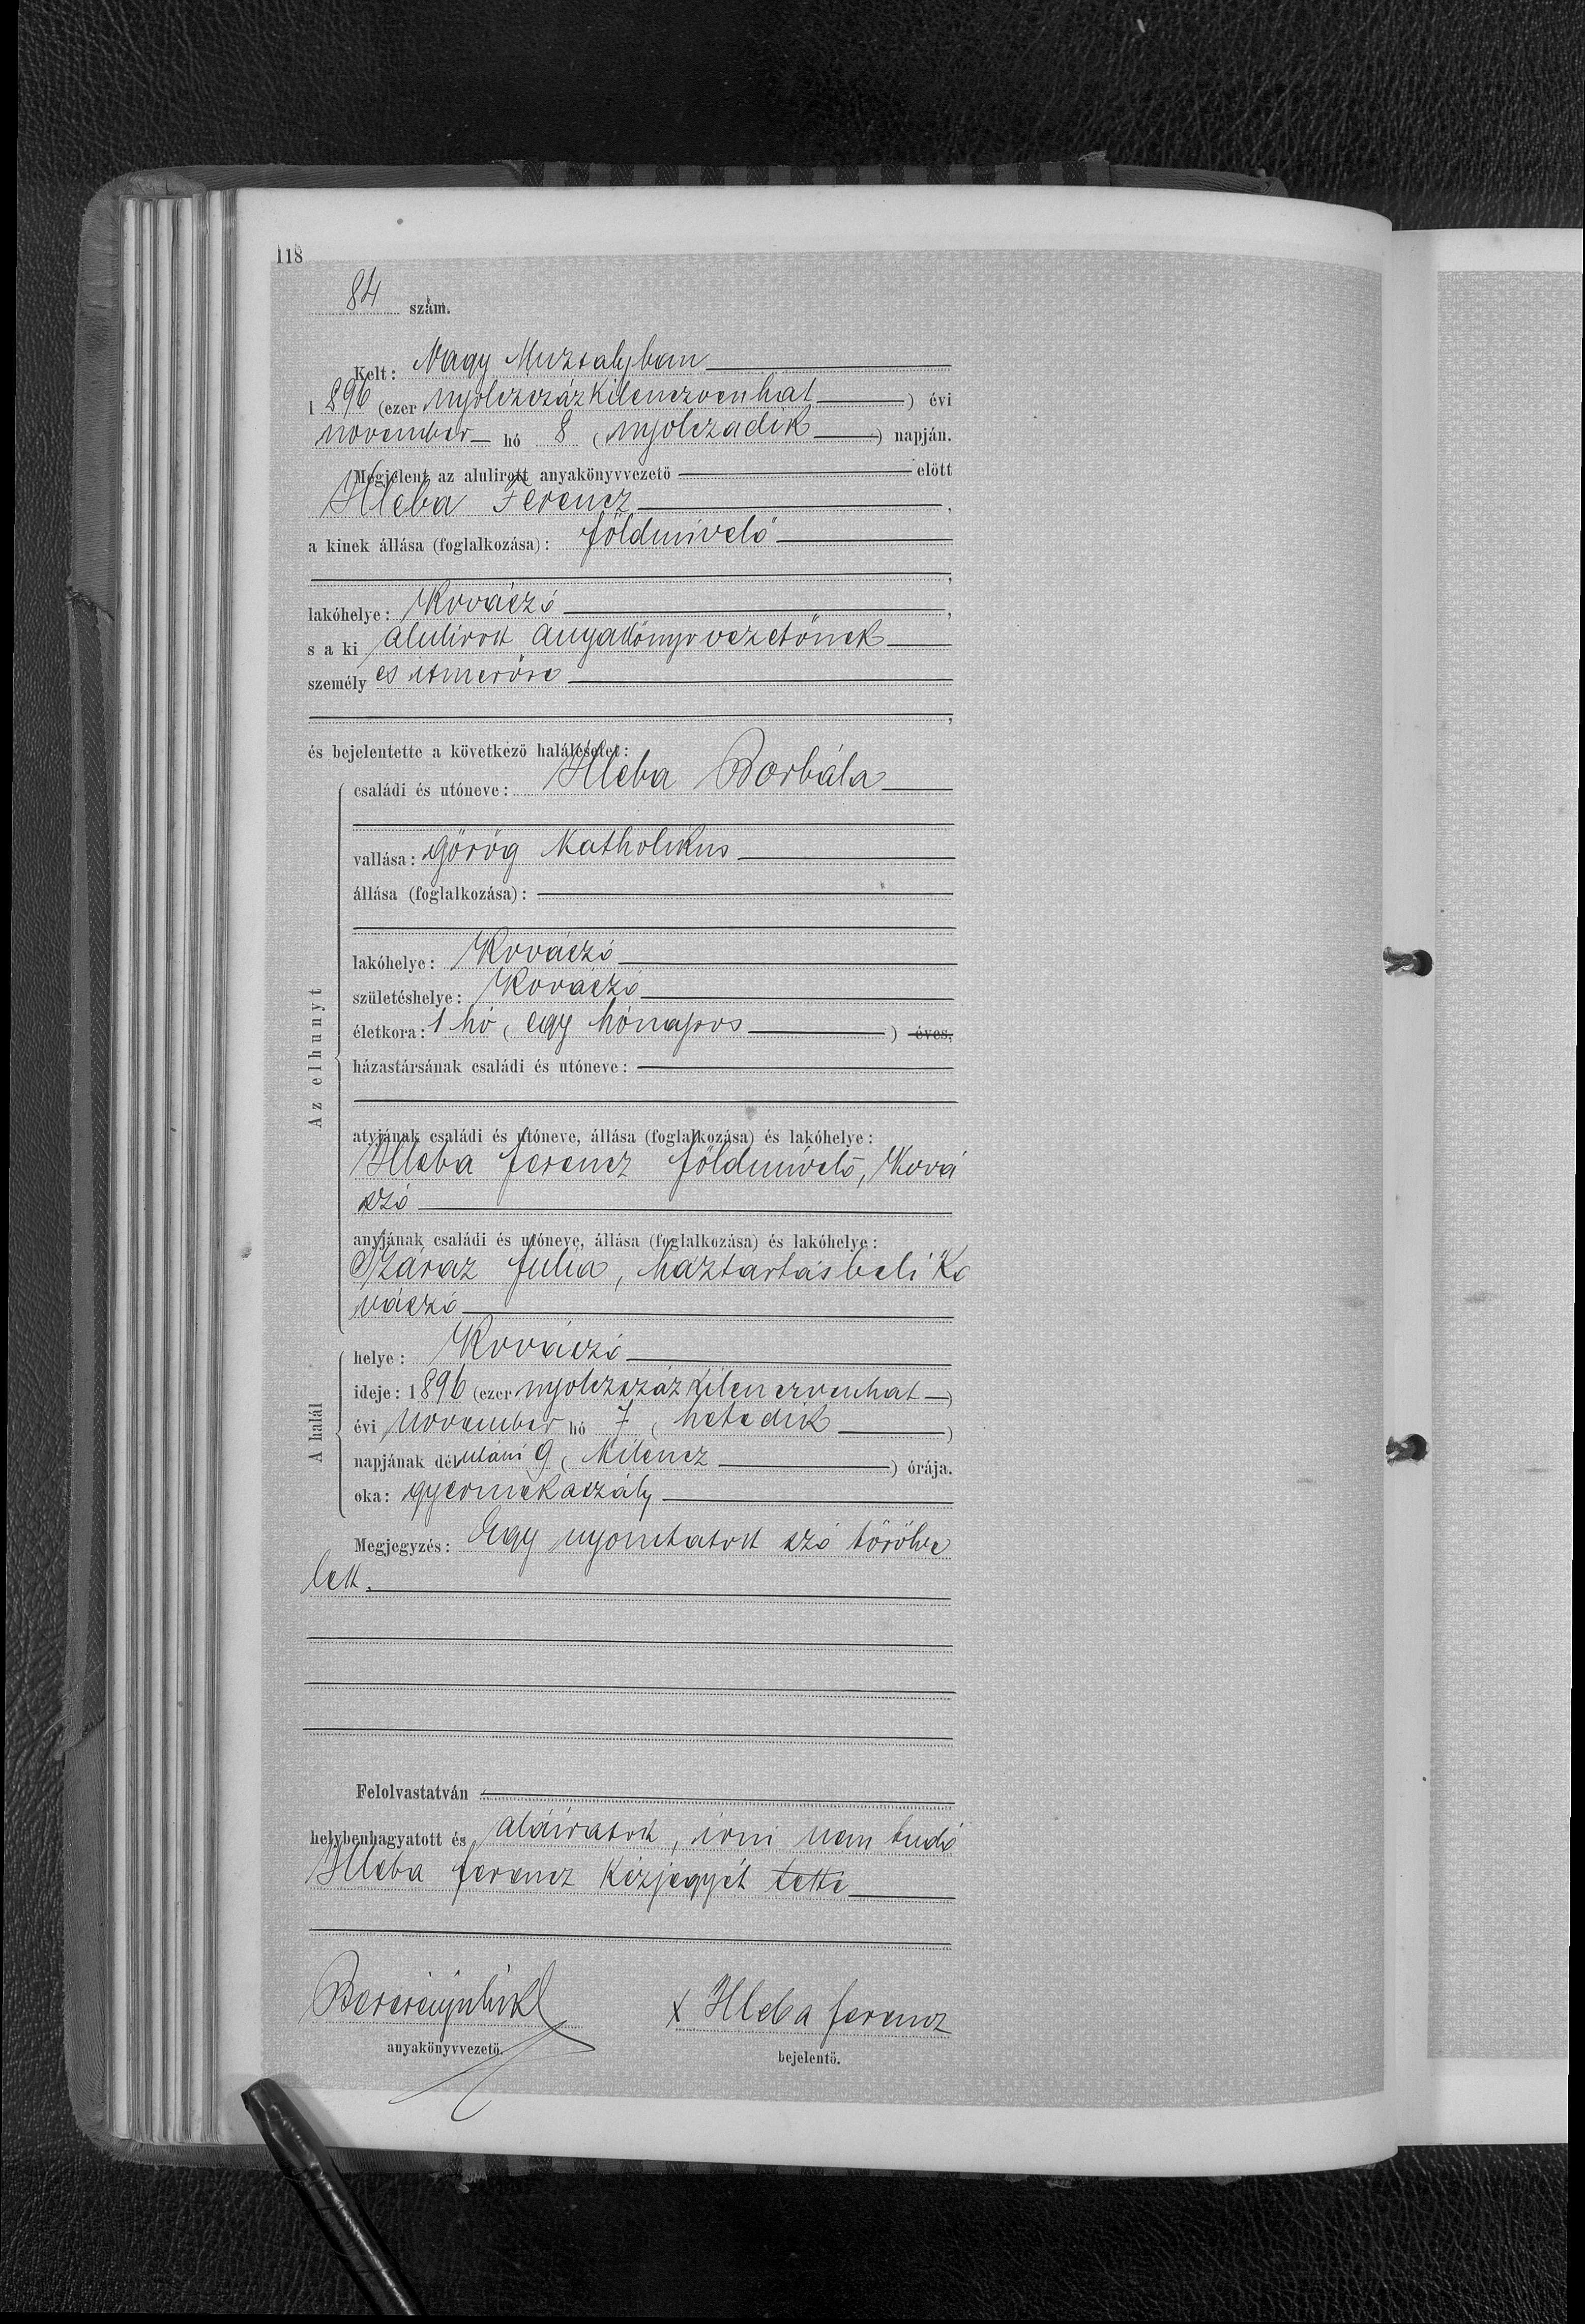 118
84 szám.
Kelt: Nagy Muzsalyban
1 896 (ezer nyolczszázkilenczvenhat ) évi
november hó 8 (nyolczadik ) napján.
Megjelent az alulirott anyakönyvvezető előtt
Hleba Ferencz ,
a kinek állása (foglalkozása): földmivelő
,
lakóhelye: Kovászó ,
s a ki alulirott anyakönyvvezetőnek
személy es ismerőse
,
és bejelentette a következő halálesetet:
Az elhunyt
családi és utóneve: Hleba Borbála
vallása: görög katholikus
állása (foglalkozása):
lakóhelye: Kovászó
születéshelye: Kovászó
életkora: 1 hó ( egy hónapos ) éves,
házastársának családi és utóneve:
atyjának családi és utóneve, állása (foglalkozása) és lakóhelye:
Hleba Ferencz földmivelő, Ková
szó
anyjának családi és utóneve, állása (foglalkozása) és lakóhelye:
Száraz Julia, háztartásbeli Ko
vászó
A halál
helye: Kovászó
ideje: 1 896 (ezer nyolczszázkilenczvenhat )
évi november hó 7 ( hetedik )
napjának dél utáni 9 ( kilencz ) órája.
oka: gyermekaszály
Megjegyzés: Egy nyomtatott szó törölve
lett.
Felolvastatván
helybenhagyatott és aláiratott, irni nem tudó
Hleba Ferencz kézjegyét tette
anyakönyvvezető.
x Hleba Ferencz
bejelentő.